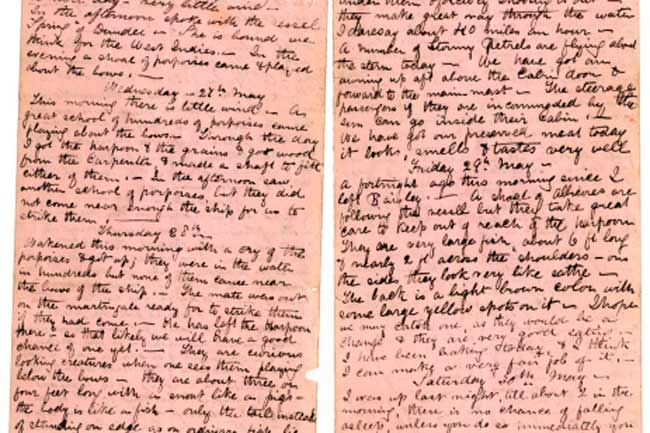 In the afternoon spoke with the vessel
Spring of Dundee - She is bound we
think for the West Indies. - In the
evening a shoal of porpoises came & played
about the bows. -
Wednesday - 27th May
This morning there is little wind - A
great school of hundreds of porpoises came
playing about the bows - Through the day
I got the harpoon & the grains & got wood
from the Carpenter & made a shaft to fit
either of them. - In the afternoon saw
another school of porpoises, but they did
not come near enough the ship for us to
strike them. -
Thursday 28th -
Wakened this morning with a cry of the
porpoises & got up; they were in the water
in hundreds but none of them came near
the bows of the ship. - The mate was out
on the martingale ready for to strike them
if they had come. - He has left the harpoon
there so that likely we will have a good
chance of one yet. - They are curious
looking creatures when one sees them playing
below the bows - they are about three or
four feet long with a snout like a pigs -
the body is like a fish - only the tail instead
of standing on edge as an ordinary fish lie
they make great way through the water
I daresay about 40 miles an hour -
A number of Stormy Petrels are flying about
the stern today - We have got an
awning up aft above the Cabin door &
forward to the main mast - The steerage
passengers if they are incommoded by the
sun can go inside their Cabin. -
We have got our preserved meat today
it looks, smells & tastes very well
Friday 29th May -
A fortnight ago this morning since I
left Paisley. - A shoal of albicores are
following the vessel but they take great
care to keep out of reach of the harpoon
They are very large fish, about 6 ft long
& nearly 2 ft across the shoulders - on
the sides they look very like
The back is a light brown color with
some large yellow spots on it - I hope
we may catch one, as they would be a
change & they are very good eating -
I have been baking today & I think
I can make a very fair job of it. -
Saturday 30th May -
I was up last night till about 2 in the
morning, there is no chance of falling
asleep, unless you do so immediately you